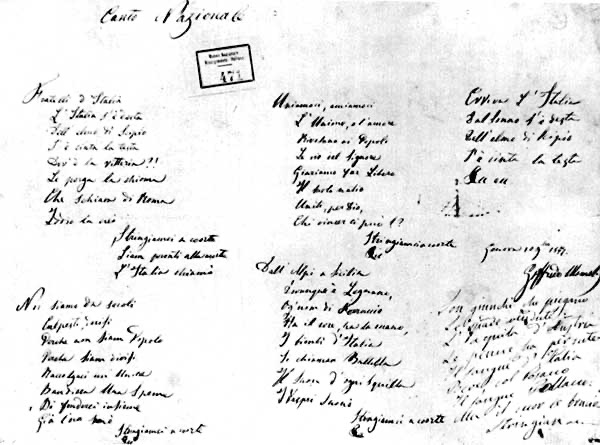 Canto Nazionale
471
Fratelli d'Italia
L'Italia s'è desta
Dell'elmo di Scipio
S'è cinta la testa
Dov'è la vittoria?!!
Le porga la chioma
Chè schiava di Roma
Iddio la creò
Stringiamci a coorte
Siam pronti alla morte
L'Italia chiamò
Noi siamo da secoli
Calpesti, derisi
Perchè non siam Popolo
Perchè siam divisi
Raccolgaci un'Unica
Bandiera Una Speme
Di fonderci insieme
Già l'ora suonò
Stringiamci a coorte
Uniamoci, amiamoci
L'Unione, e l'amore
Rivelano ai Popoli
Le vie del Signore
Giuriamo far Libero
Il suolo natio
Uniti, per Dio,
Chi vincer ci può!?
Stringiamci a coorte
Dall'Alpi a Sicilia
Dovunque è Legnano,
Ogn'uom di Ferruccio
Ha il core, ha la mano,
I bimbi d'Italia
Si chiaman Balilla
Il Suon d'ogni Squilla
I Vespri Suonò
Stringiamci a coorte
Evviva l'Italia
Dal sonno s'è desta
Dell'elmo di Scipio
S'è cinta la testa
Genova
Goffredo Mameli
Son giunchi che piegano
Le spade vendute
L'Aquila d'Austria
Le penne ha perdute
Il sangue d'Italia
Bevè, col Cosacco
Il sangue Polacco:
Ma il cuor le bruciò
Stringiamci